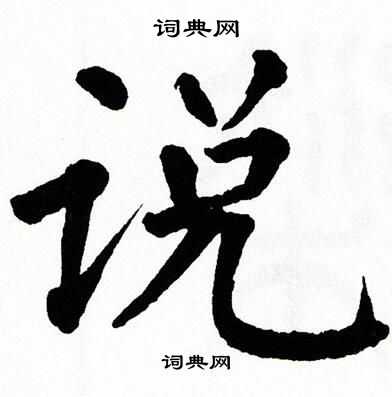 词典网
说
词典网